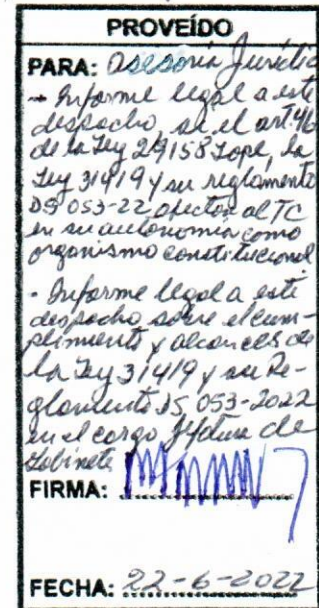 PROVEÍDO
PARA: Asesoría Jurídic
- Informe legal a este
despacho, si el art. 46
de la Ley 29158 Lope, la
Ley 31419 y su reglamento
DS 053-22 afectan al TC
en su autonomía como
organismo constitucional
- Informe legal a este
despacho sobre el cum-
plimiento y alcances de
la Ley 31419 y su Re-
glamento DS 053-2022
en el cargo Jefatura de
Gabinete
FIRMA:
FECHA: 22-6-2022